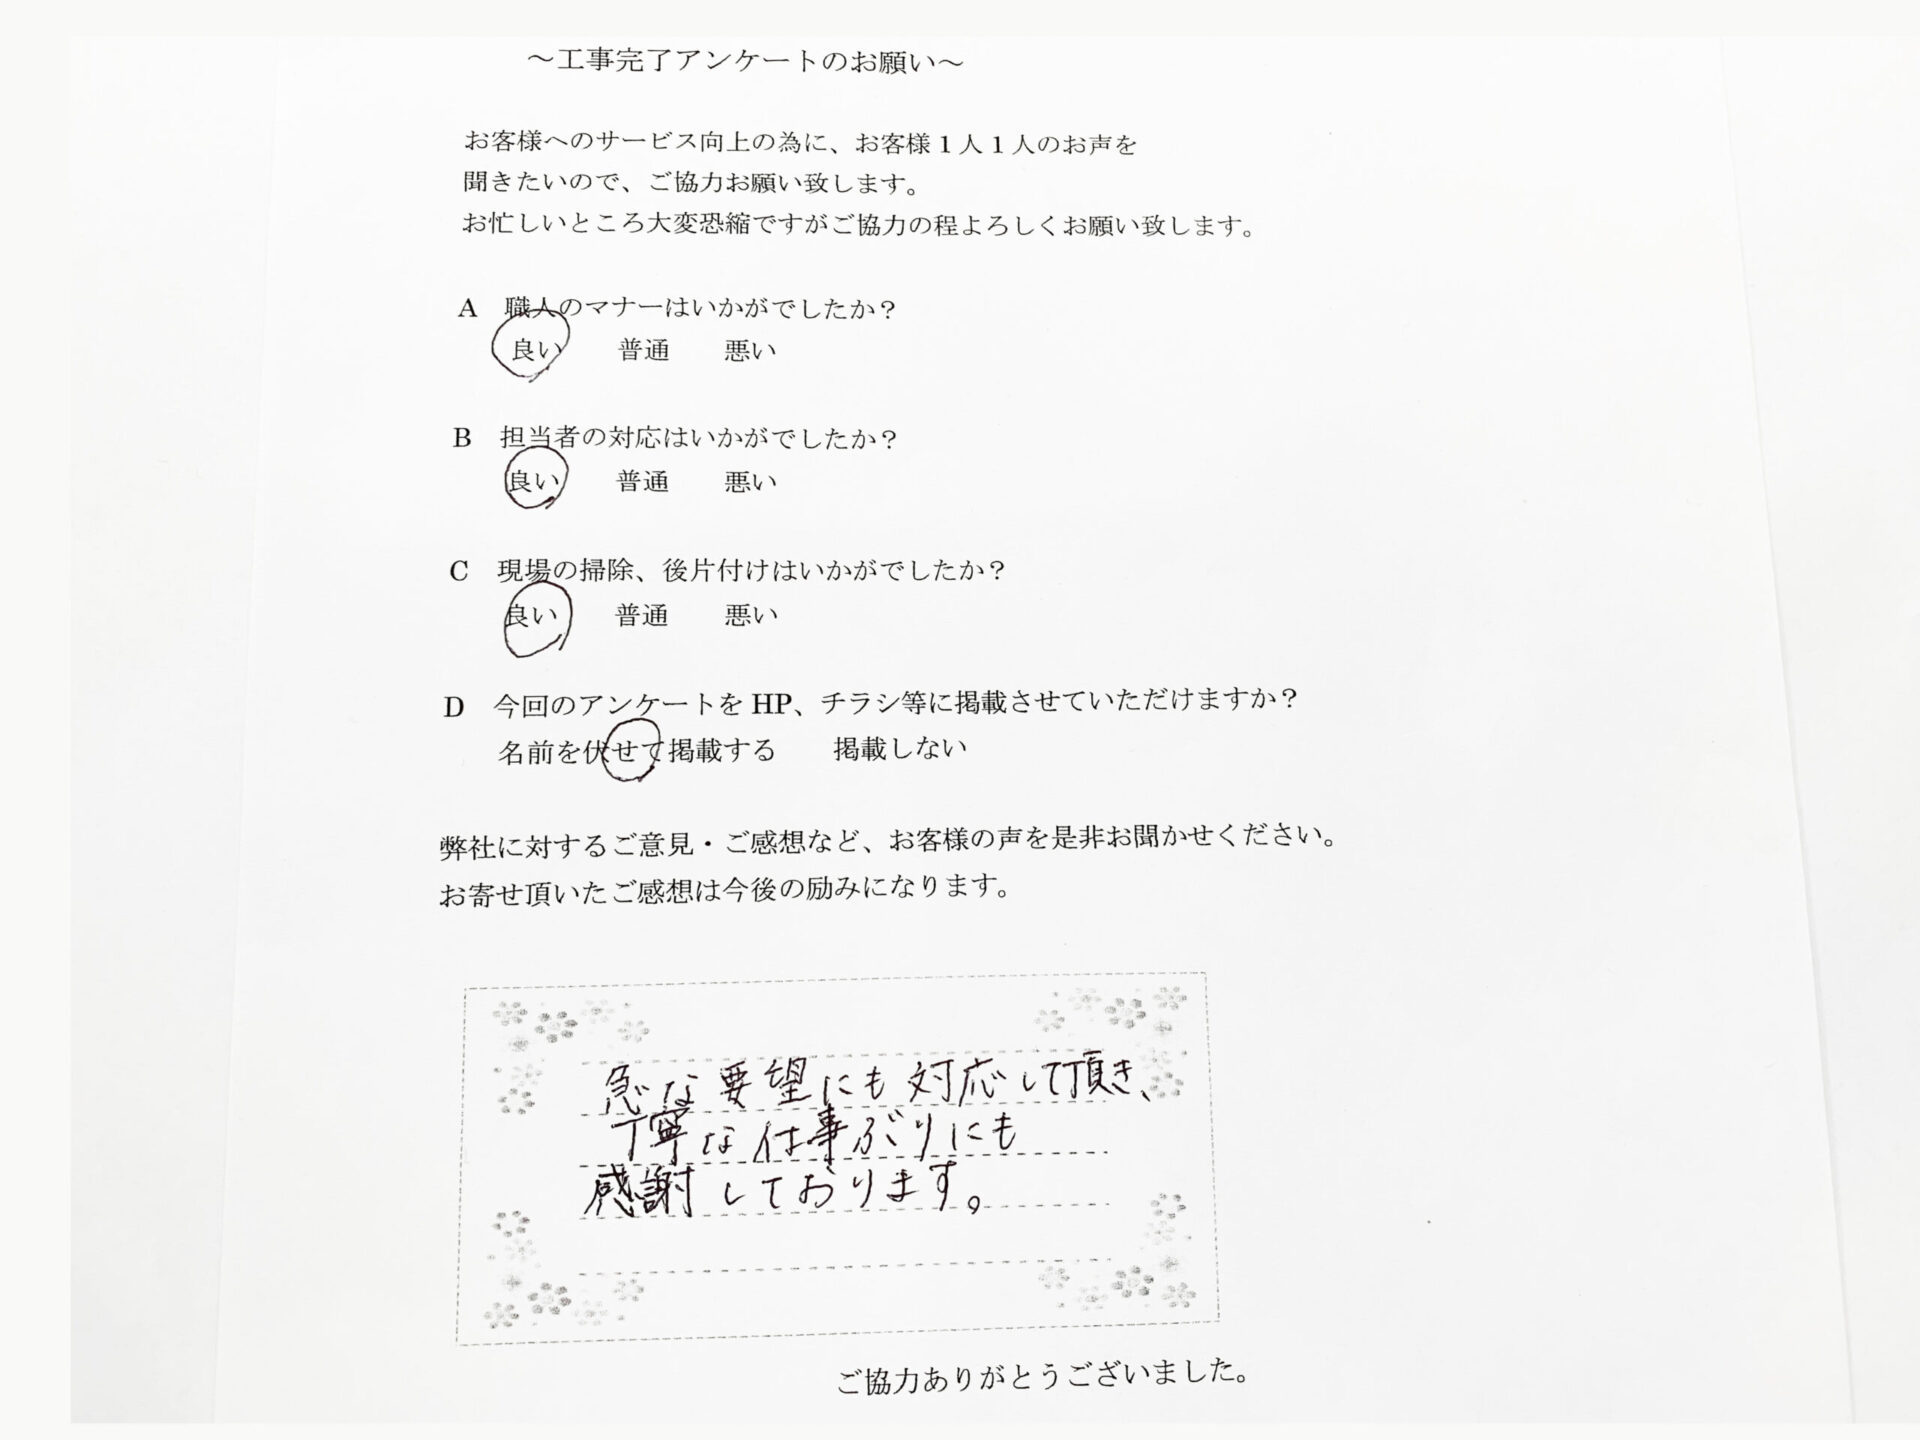 ～工事完了アンケートのお願い～
お客様へのサービス向上の為に、お客様１人１人のお声を
聞きたいので、ご協力お願い致します。
お忙しいところ大変恐縮ですがご協力の程よろしくお願い致します。
A 職人のマナーはいかがでしたか？
良い 普通 悪い
B 担当者の対応はいかがでしたか？
良い 普通 悪い
C 現場の掃除、後片付けはいかがでしたか？
良い 普通 悪い
D 今回のアンケートを HP、チラシ等に掲載させていただけますか？
名前を伏せて掲載する 掲載しない
弊社に対するご意見・ご感想など、お客様の声を是非お聞かせください。
お寄せ頂いたご感想は今後の励みになります。
急な要望にも対応して頂き、
丁寧な仕事ぶりにも
感謝しております。
ご協力ありがとうございました。